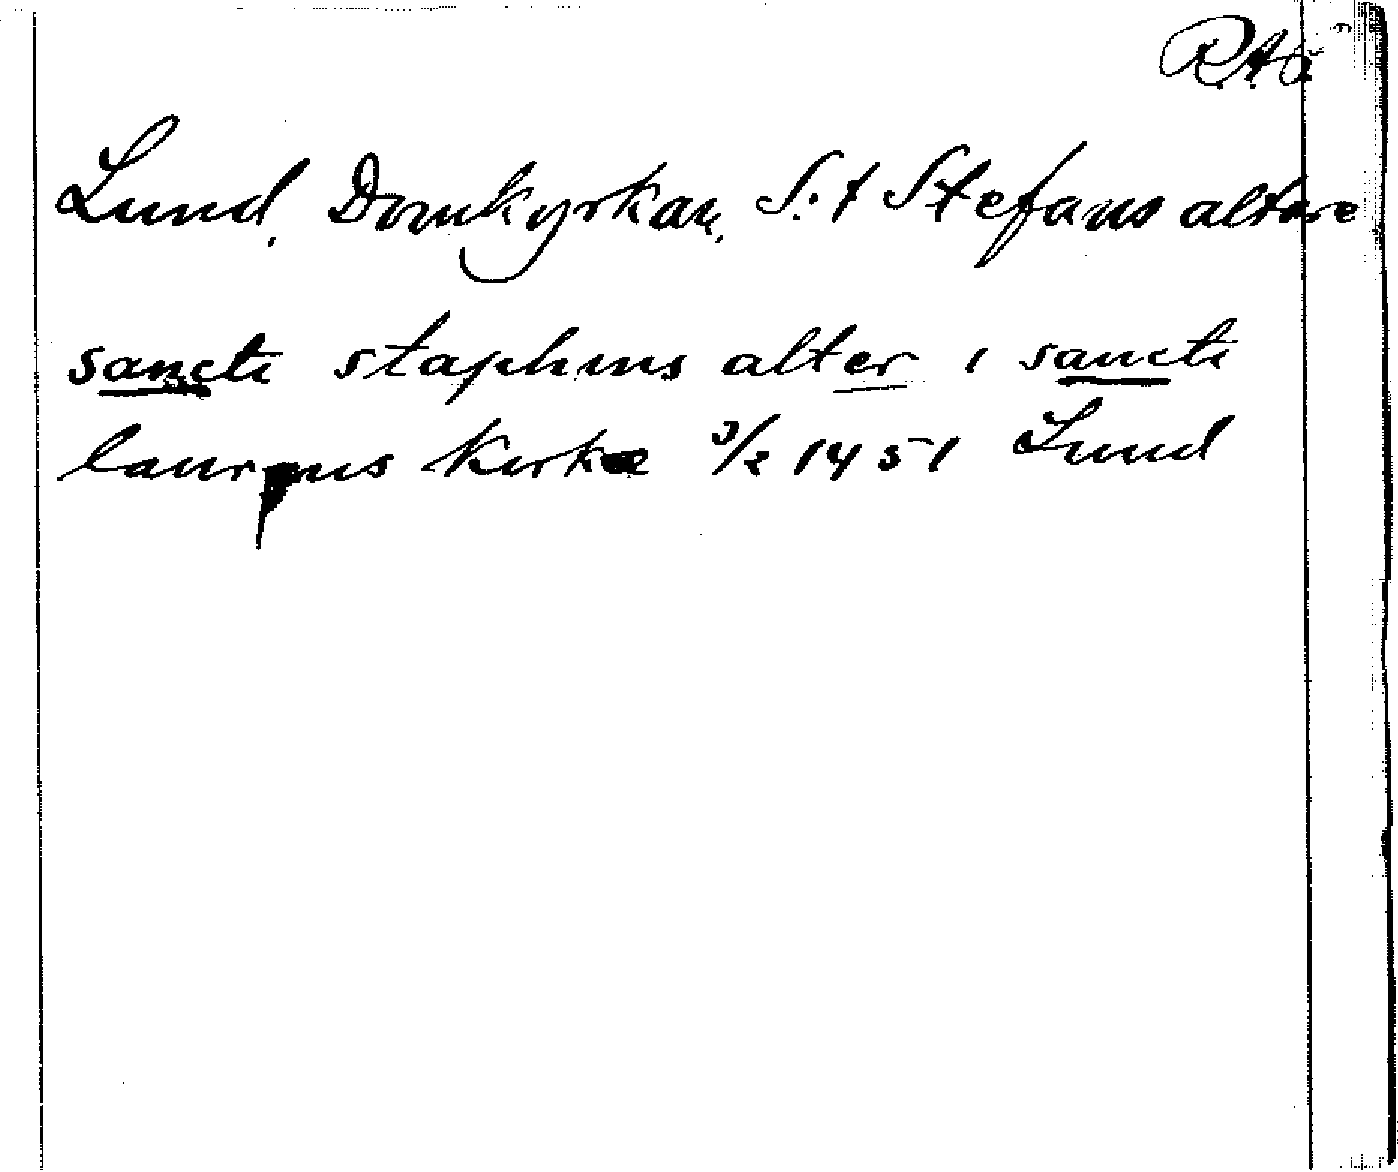 RAÖ
Lund, Domkyrkan, S:t Stefans altare
sancti staphens alter i sancti
laurens kirke 3/2 1451 Lund